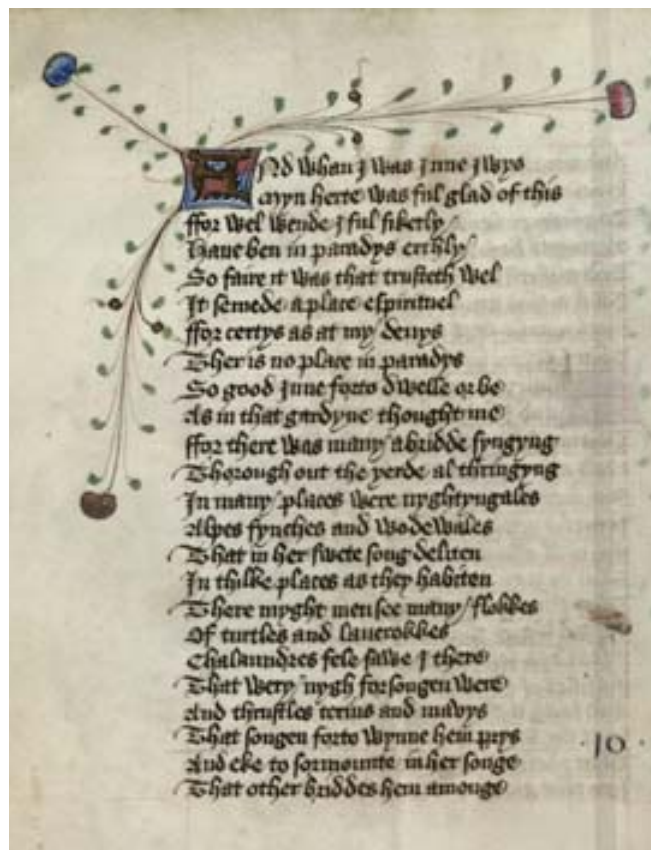 And whan I was Inne I wys
Myn herte was ful glad of this
ffor wel wende I ful sikerly
Haue ben in paradys erthly
So faire it was that trusteth wel
It semede a place espirituel
ffor certys as at my deuys
Ther is no place in paradys
So good Inne forto dwelle or be
As in that gardyne thought me
ffor there was many a bridde syngyng
Thorough out the yerde al thringyng
In many places were nyghtyngales
Alpes fynches and wodewales
That in her swete song deliten
In thilke places as they habiten
There myght men see many flokkes
Of turtles and lauerokkes
Chalaundres fele sawe I there
That wery nygh forsongen were
And thrustles terins and mavys
That songen forto wynne hem prys
And eke to sormounte in her songe
That other briddes hem amonge
10